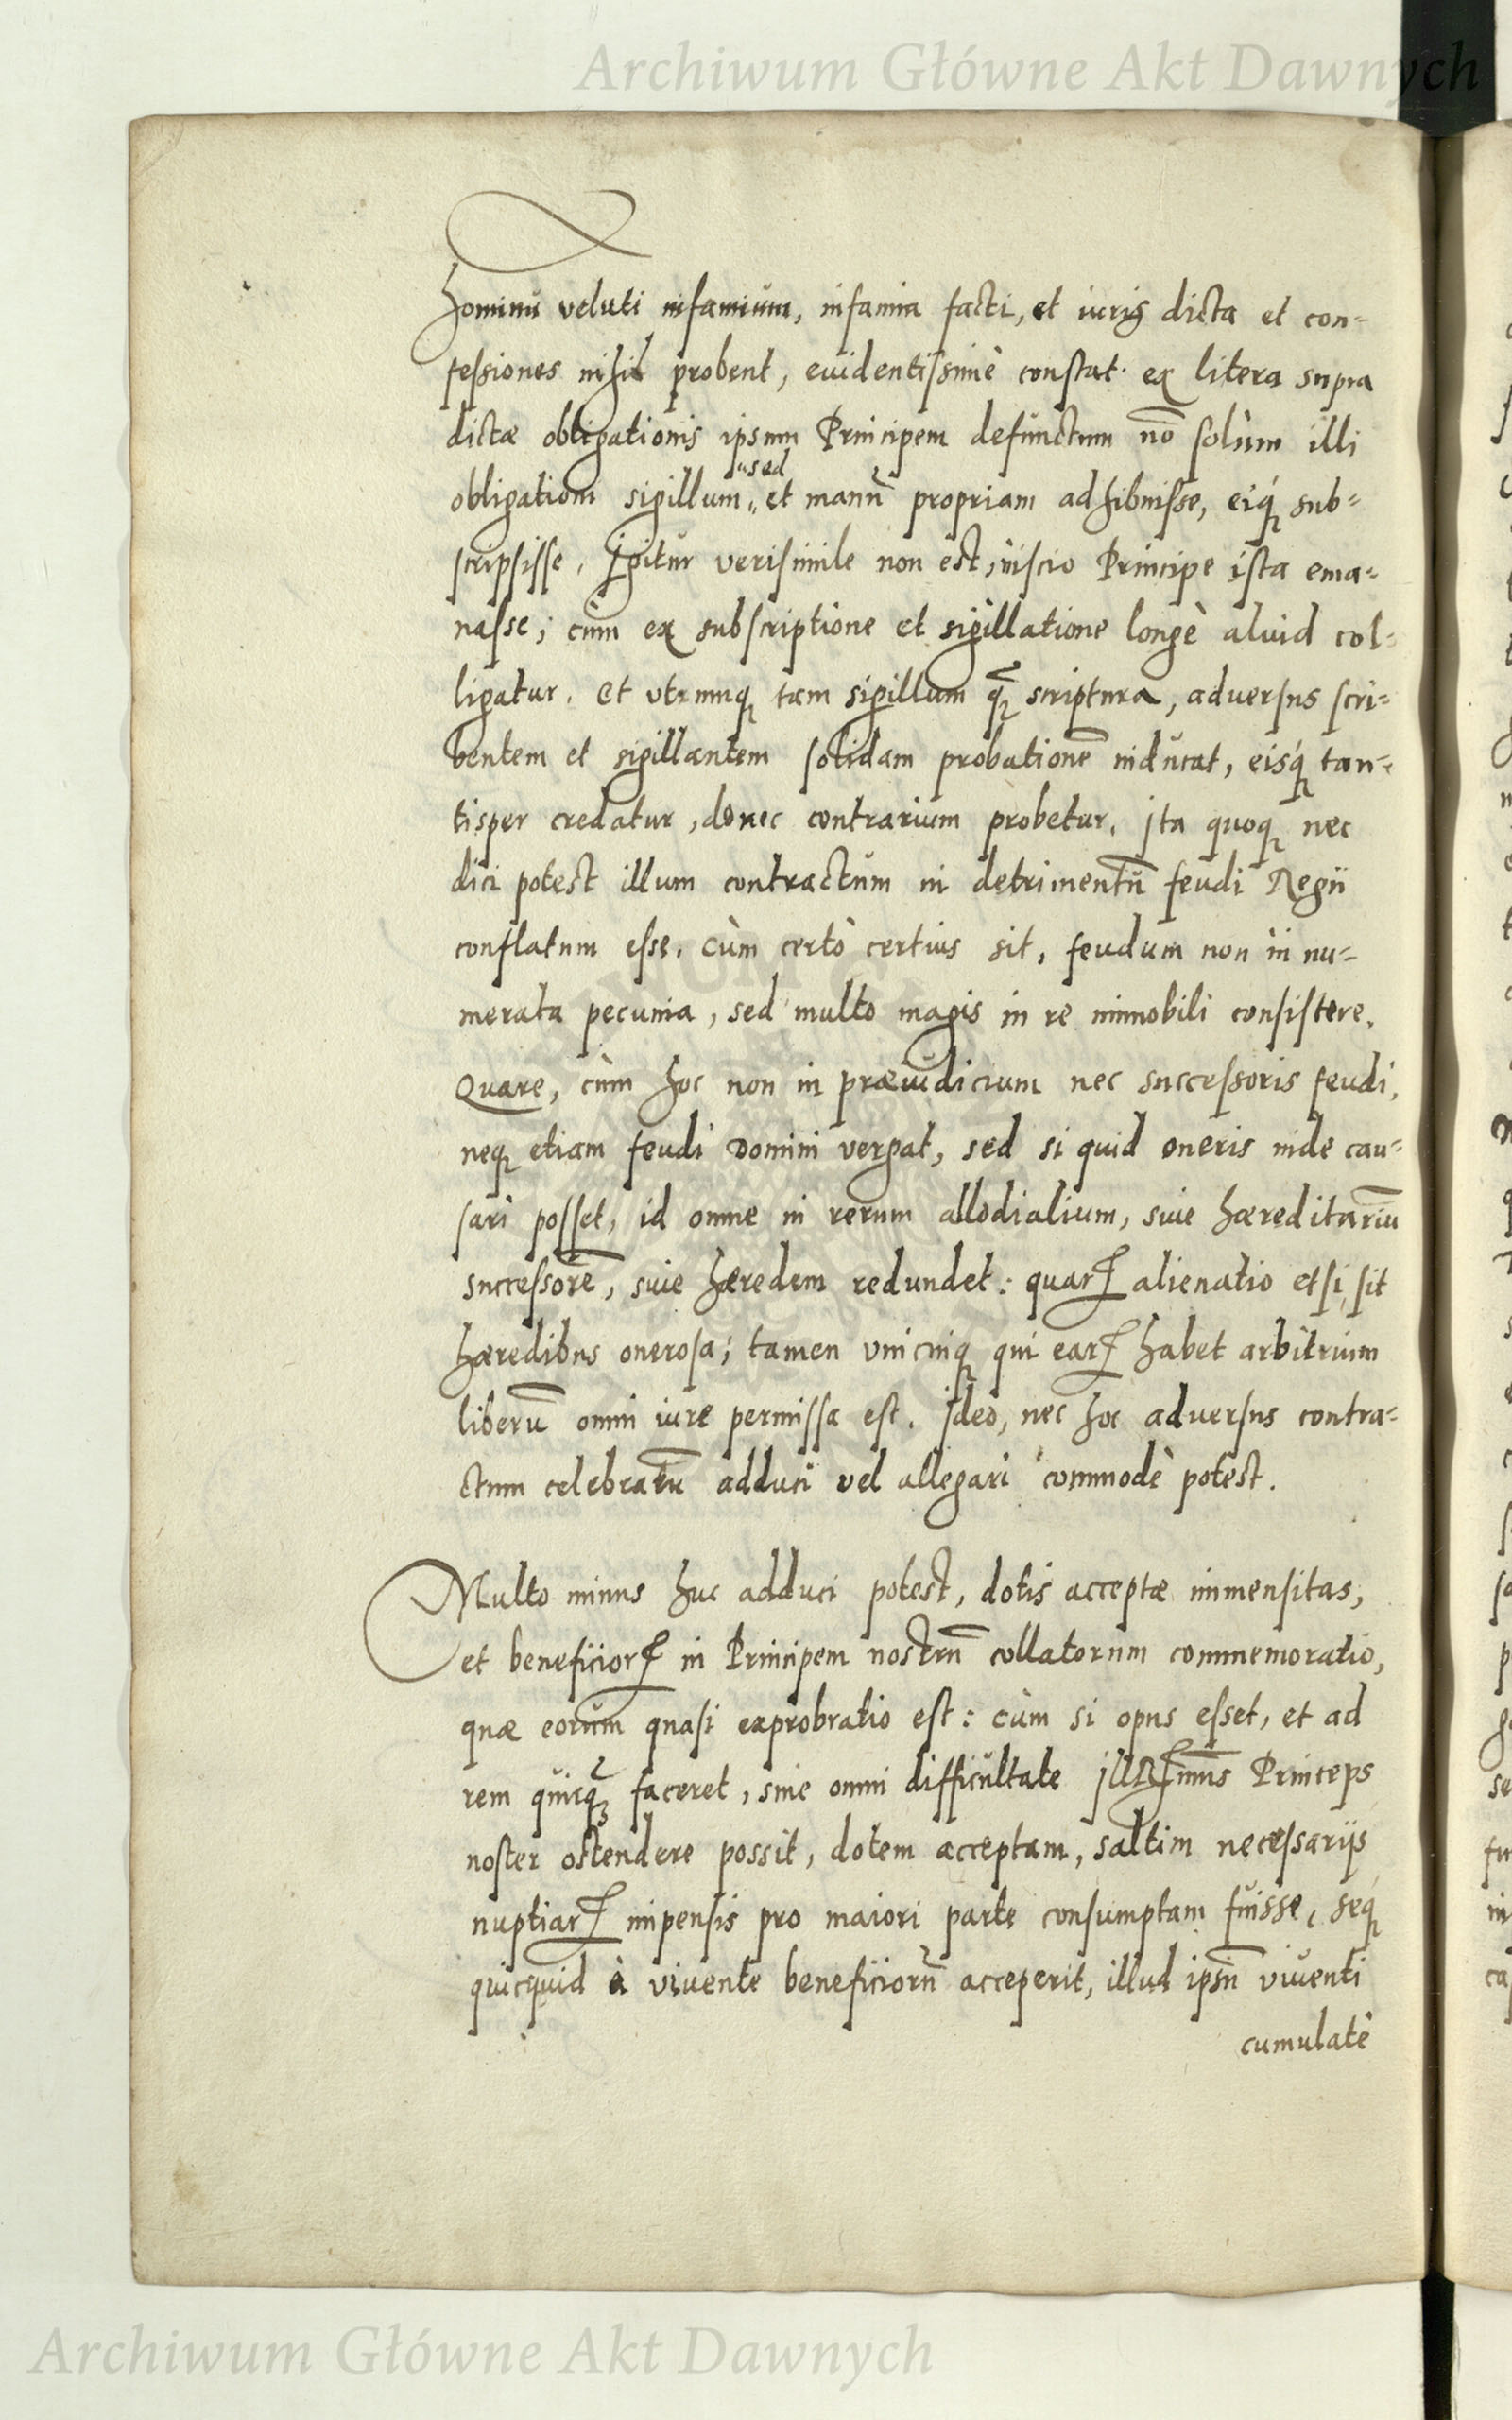 Archiwum Główne Akt Dawnych
hominũ veluti infamium, infamia facti, et iuris dicta et con=
fessiones nihil probent, euidentissimè constat ex litera supra
dictæ obligationis ipsum Principem defunctum nõ solùm illi
obligationi sigillum, sed et manũ propriam adhibuisse, eiq́ꝫ sub=
scripsisse. Igitur verisimile non est, inscio Principe ista ema=
nasse; cùm ex subscriptione et sigillatione longè aliud col=
ligatur. et vtrumqꝫ tam sigillum q̃ꝫ scriptura, aduersus scri=
bentem et sigillantem solidam probationẽ inducat, eisq́ꝫ tan=
tisper credatur, donec contrarium probetur. Ita quoqꝫ nec
dici potest illum contractum in detrimentũ feudi Regii
conflatum esse. cùm certò certius sit, feudum non in nu=
merata pecunia, sed multo magis in re immobili consistere.
Quare, cùm hoc non in præiudicium nec successoris feudi,
neqꝫ etiam feudi Domini vergat, sed si quid oneris inde cau=
sari posset, id omne in rerum allodialium, siue hæreditariũ
successorẽ, siue hæredem redundet: quarꝝ alienatio etsi sit
hæredibus onerosa; tamen vnicuiqꝫ qui earꝝ habet arbitrium
liberũ omni iure permissa est. Ideo, nec hoc aduersus contra=
ctum celebratũ adduci vel allegari commodè potest.
Multo minus huc adduci potest, dotis acceptæ immensitas,
et beneficiorꝝ in Principem nostrũ collatorum commemoratio,
quæ eorum quasi exprobratio est: cùm si opus esset, et ad
rem quicq̃ꝫ faceret, sine omni difficultate Illustrissimus Princeps
noster ostendere possit, dotem acceptam, saltim necessarijs
nuptiarꝝ impensis pro maiori parte consumptam fuisse, seqꝫ
quicquid à viuente beneficiorũ acceperit, illud ipsũ viuenti
cumulatè
Archiwum Główne Akt Dawnych